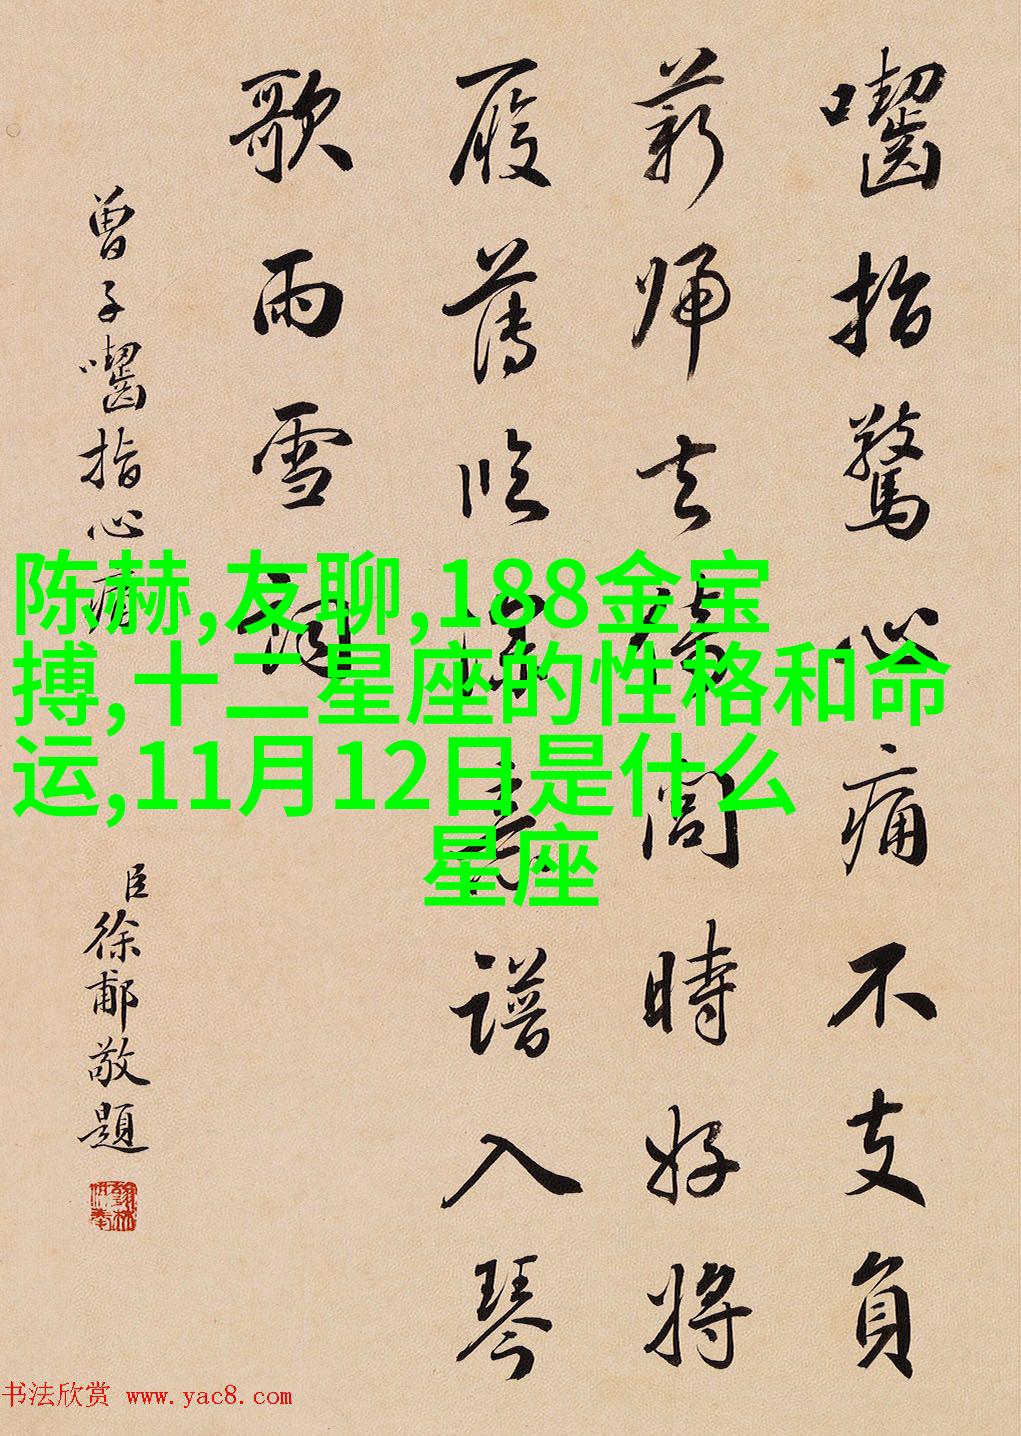 囓指驚心痛不支負
薪歸去倚閭時好將
履薄臨深意譜入琴
歌雨雪詞
曾子囓指心痛
臣徐郙敬題
陈赫,友聊,188金宝
搏,十二星座的性格和命
运,11月12日是什么
星座
书法欣赏 www.yac8.com